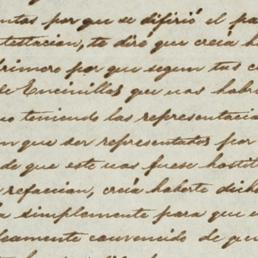 ntas por que se difirió el pa
testacion, te diré que creía h
rimero por que segun tus c
de Encinillas que vas habi
o teniendo las representacio
n que ser representados por
de que este vas fuese hostil
refaccion, creía haberte dicho
a simplemente para que e
lsamente convencido de qu